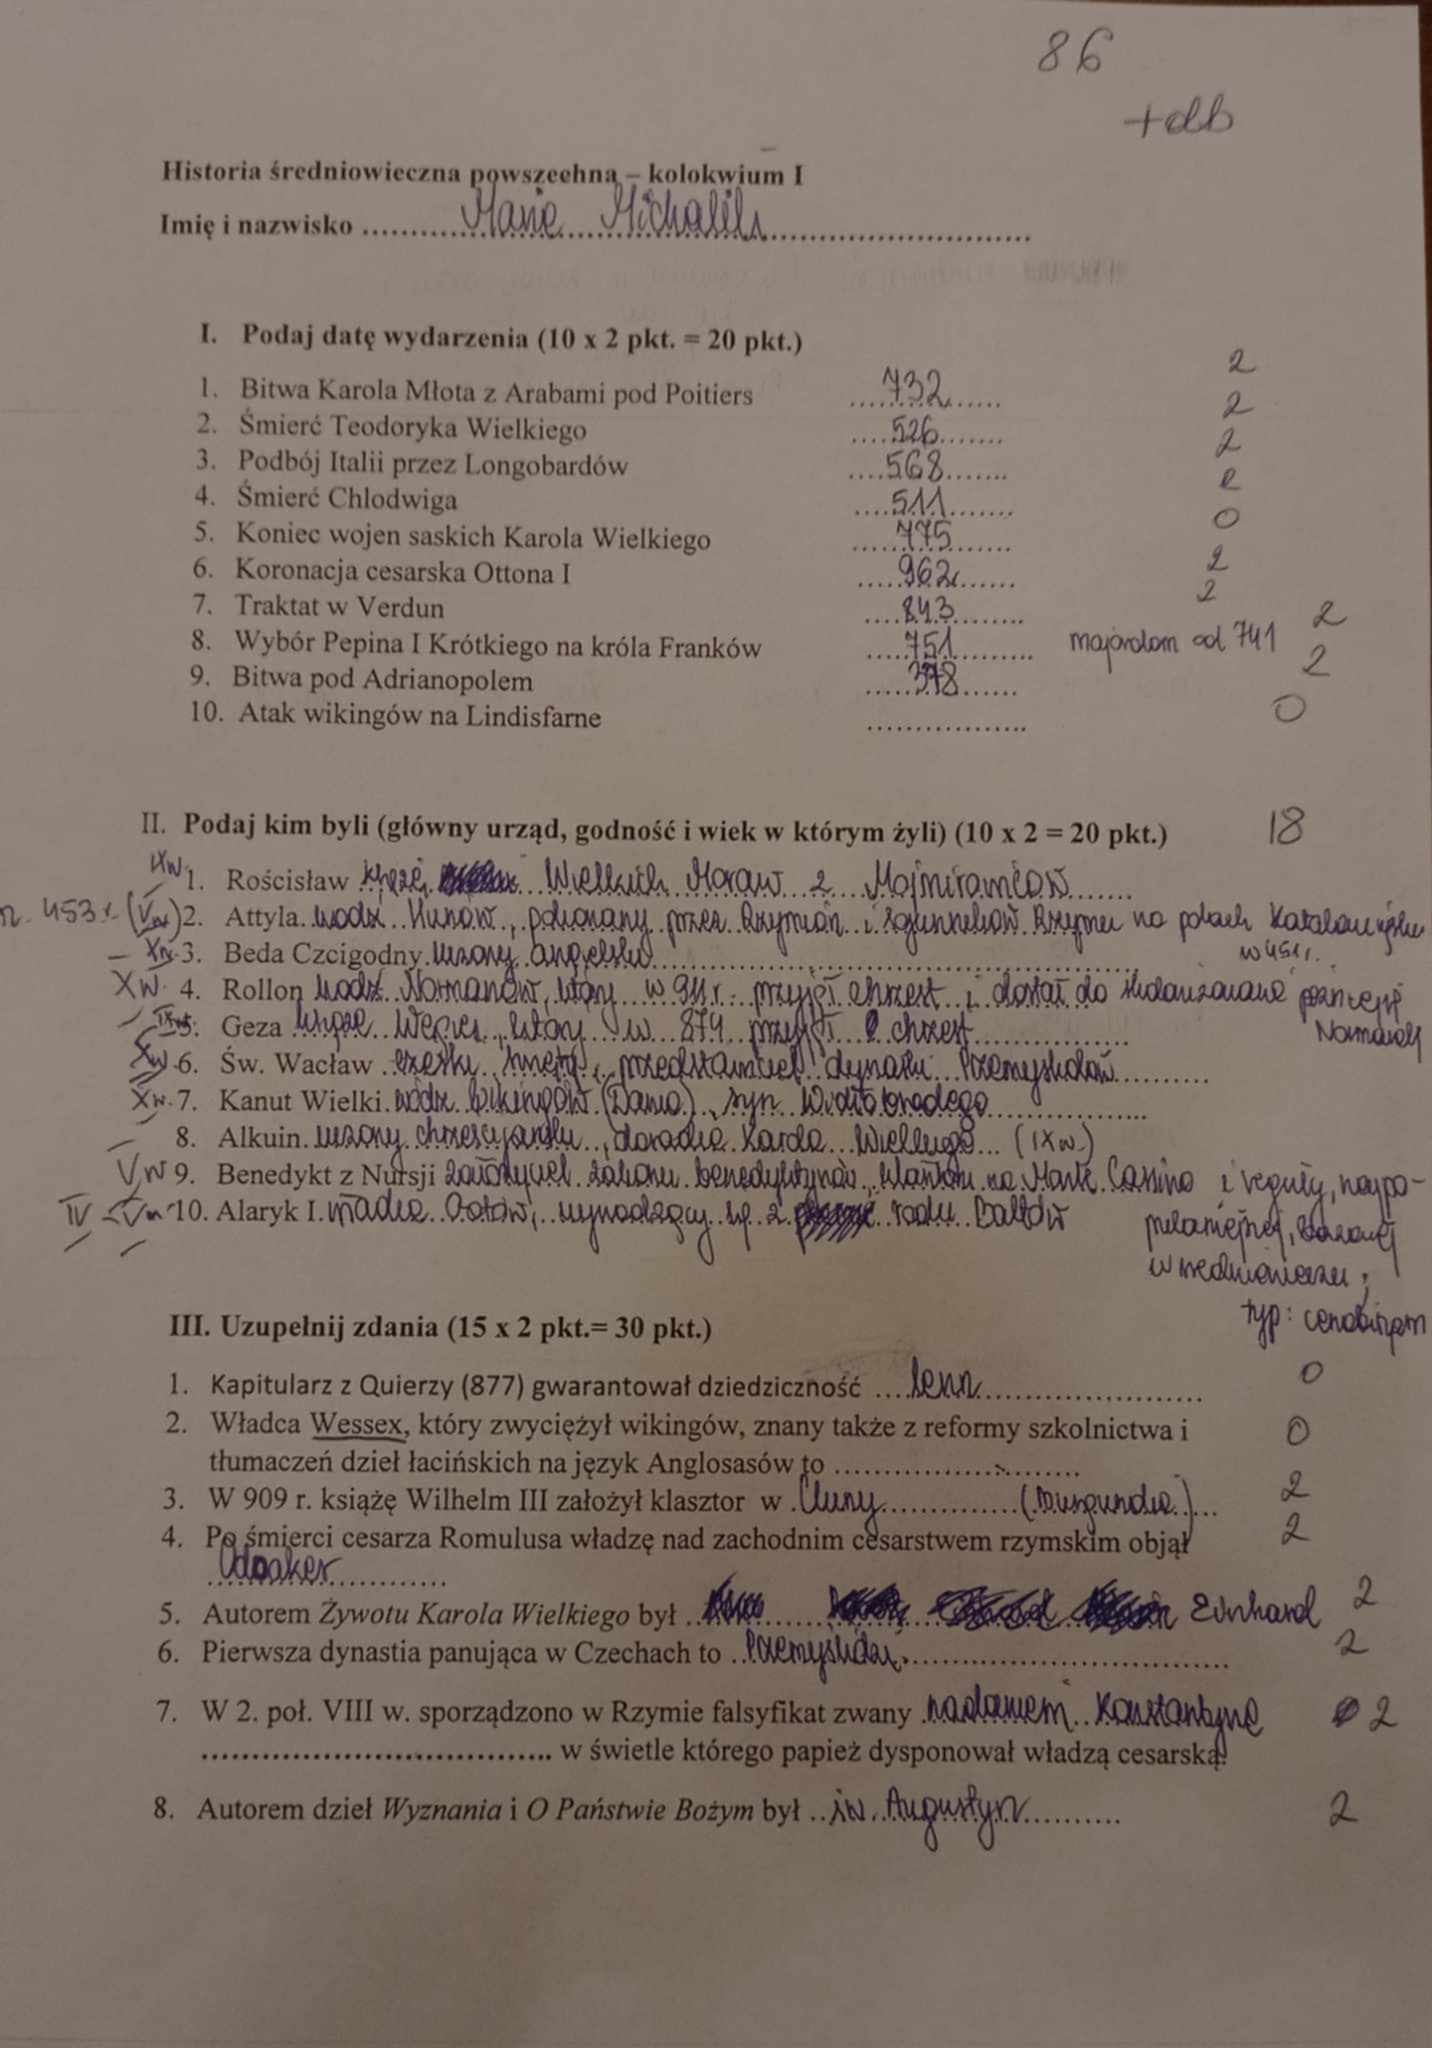 86
+db
Historia średniowieczna powszechna – kolokwium I
Imię i nazwisko ........ Maria Michalik ........
I. Podaj datę wydarzenia (10 x 2 pkt. = 20 pkt.)
1. Bitwa Karola Młota z Arabami pod Poitiers 732 2
2. Śmierć Teodoryka Wielkiego 526 2
3. Podbój Italii przez Longobardów 568 2
4. Śmierć Chlodwiga 511 2
5. Koniec wojen saskich Karola Wielkiego 775 0
6. Koronacja cesarska Ottona I 962 2
7. Traktat w Verdun 843 2
8. Wybór Pepina I Krótkiego na króla Franków 751 majordom od 741 2
9. Bitwa pod Adrianopolem 378 2
10. Atak wikingów na Lindisfarne ........ 0
II. Podaj kim byli (główny urząd, godność i wiek w którym żyli) (10 x 2 = 20 pkt.) 18
IX w. 1. Rościsław książę Wielkich Moraw z Mojmirowców
453 r. (V w.) 2. Attyla wódz Hunów, pokonany przez Rzymian i sojuszników Rzymu na polach Katalaunijskich
w 451 r.
X w. 3. Beda Czcigodny uczony angielski
X w. 4. Rollon wódz Normanów, który w 911 r. przyjął chrzest i dostał do
Normandię
IX w. 5. Geza książę Węgier, który w 874 przyjął chrzest
X w. 6. Św. Wacław czeski święty, przedstawiciel dynastii Przemyślidów
X w. 7. Kanut Wielki wódz wikingów (Dania), syn Widłobrodego
8. Alkuin uczony chrześcijański, doradca Karola Wielkiego (IX w.)
V w 9. Benedykt z Nursji założyciel zakonu benedyktynów, klasztoru na Monte Cassino i reguły, najpo-
pularniejszej,
w średniowieczu,
typ: cenobityzm
IV – V w 10. Alaryk I władca Gotów, wywodzący się z rodu Baltów
III. Uzupełnij zdania (15 x 2 pkt.= 30 pkt.)
1. Kapitularz z Quierzy (877) gwarantował dziedziczność lenn 0
2. Władca Wessex, który zwyciężył wikingów, znany także z reformy szkolnictwa i 0
tłumaczeń dzieł łacińskich na język Anglosasów to ........
3. W 909 r. książę Wilhelm III założył klasztor w Cluny (Burgundia) 2
4. Po śmierci cesarza Romulusa władzę nad zachodnim cesarstwem rzymskim objął 2
Odoaker
5. Autorem Żywotu Karola Wielkiego był Einhard 2
6. Pierwsza dynastia panująca w Czechach to Przemyślidzi 2
7. W 2. poł. VIII w. sporządzono w Rzymie falsyfikat zwany nadaniem Konstantyna 2
........ w świetle którego papież dysponował władzą cesarską.
8. Autorem dzieł Wyznania i O Państwie Bożym był św. Augustyn 2